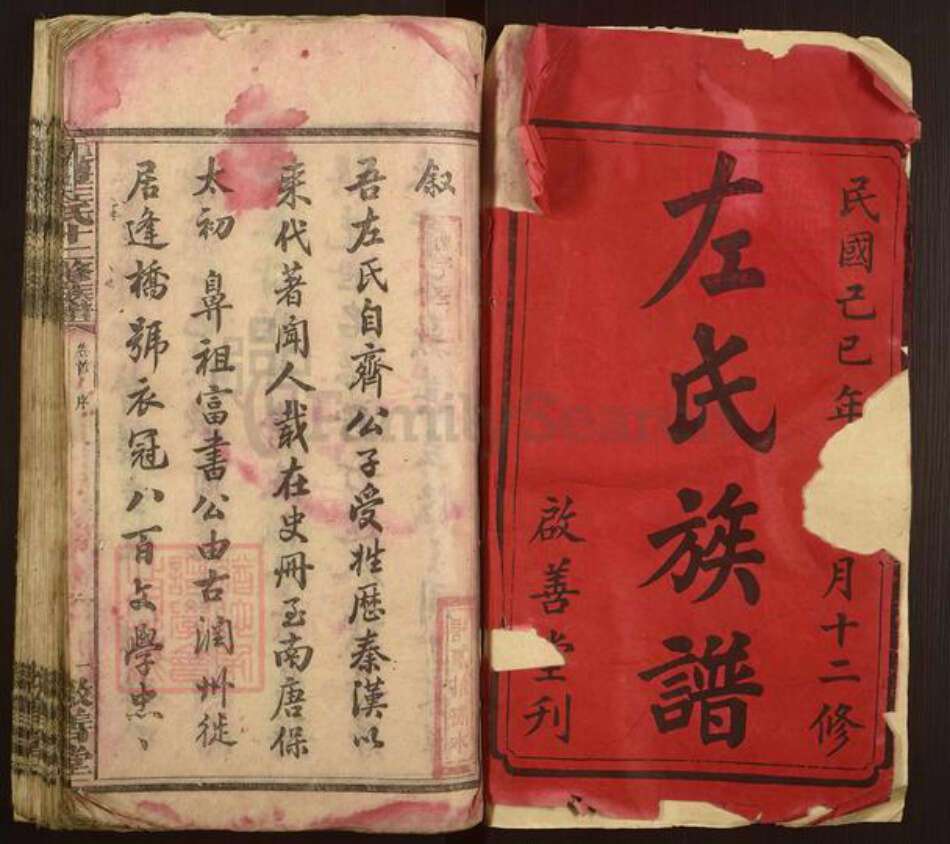 民國己巳年 月十二修
左氏族譜
啟善堂刊
敘
吾左氏自齊公子受姓歷秦漢以
來代著聞人載在史冊至南唐保
太初 鼻祖富書公由古潤州徙
居逢橋號衣冠八百文學忠、
左氏十二修族譜
卷首 序
一
啟善堂
FamilySearch